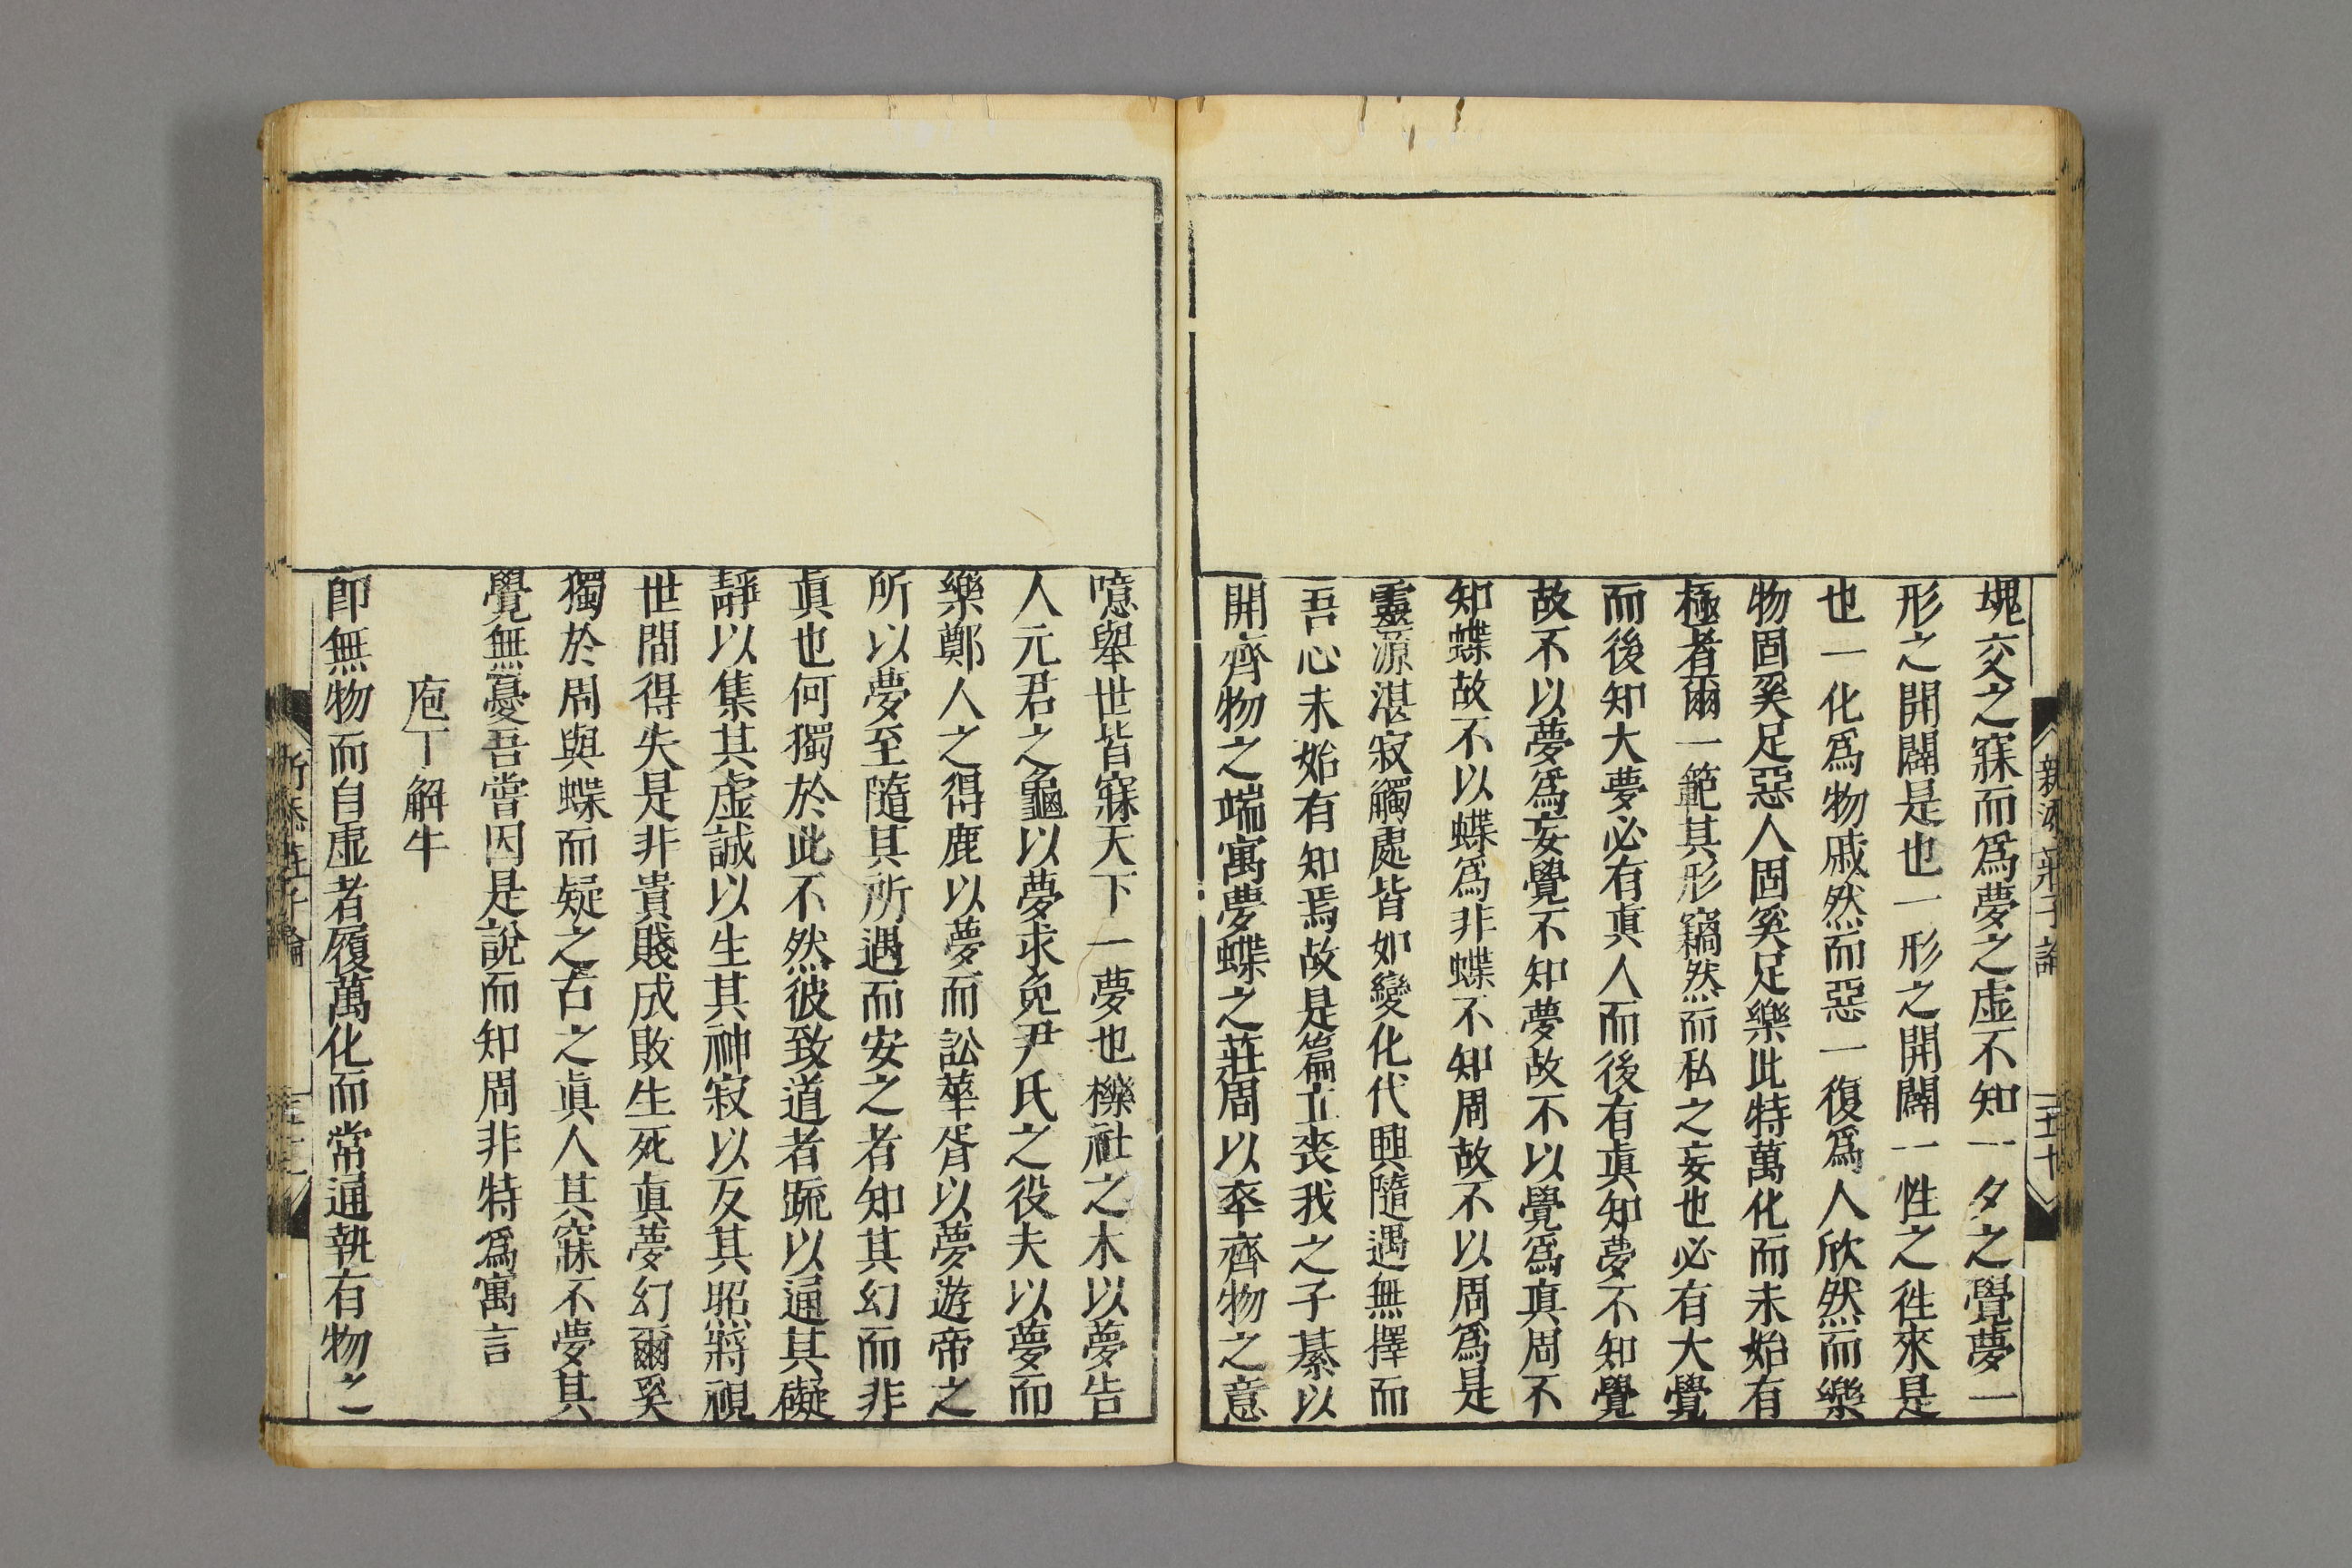 新添莊子論
五十
塊交之寐而爲夢之虛不知一夕之覺夢一
形之開闔是也一形之開闔一性之徃來是
也一化爲物戚然而惡一復爲人欣然而樂
物固奚足惡人固奚足樂此特萬化而未始有
極者爾一範其形竊然而私之妄也必有大覺
而後知大夢必有眞人而後有眞知夢不知覺
故不以夢爲妄覺不知夢故不以覺爲眞周不
知蝶故不以蝶爲非蝶不知周故不以周爲是
靈源湛寂觸處皆如變化代興隨遇無擇而
吾心未始有知焉故是篇立喪我之子綦以
開齊物之端寓夢蝶之莊周以卒齊物之意
噫舉世皆寐天下一夢也櫟社之木以夢告
人元君之龜以夢求免尹氏之役夫以夢而
樂鄭人之得鹿以夢而訟華胥以夢遊帝之
所以夢至隨其所遇而安之者知其幻而非
眞也何獨於此不然彼致道者䟽以通其礙
靜以集其虛誠以生其神寂以反其照將視
世間得失是非貴賤成敗生死眞夢幻爾奚
獨於周與蝶而疑之古之眞人其寐不夢其
覺無憂吾嘗因是說而知周非特爲寓言
庖丁解牛
卽無物而自虛者履萬化而常通執有物之
新添莊子論